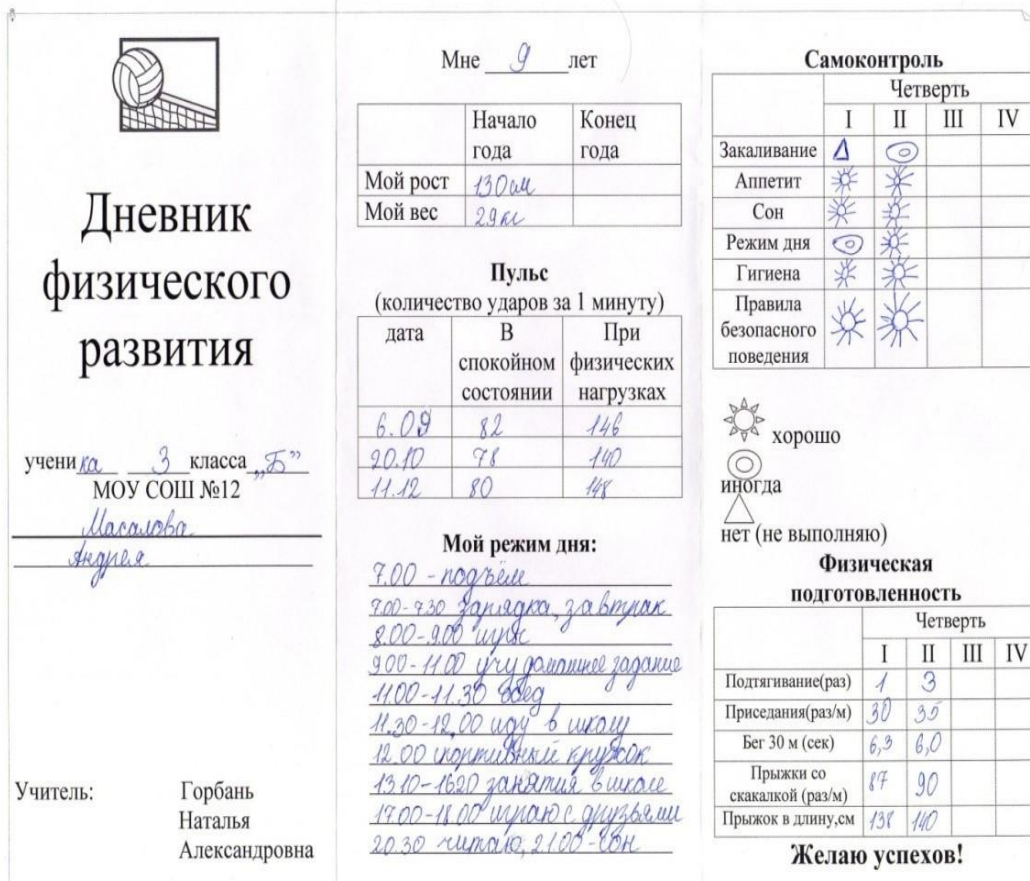 Дневник
физического
развития
ученика 3 класса „Б”
МОУ СОШ №12
Масалова
Андрея
Учитель: Горбань
Наталья
Александровна
Мне 9 лет
Начало года Конец года
Мой рост 130 см
Мой вес 29 кг
Пульс
(количество ударов за 1 минуту)
дата В спокойном состоянии При физических нагрузках
6.09 82 146
20.10 78 140
11.12 80 148
Мой режим дня:
7.00 - подъём
7.00-7.30 зарядка, завтрак
8.00-9.00 игры
9.00-11.00 учу домашнее задание
11.00-11.30 обед
11.30-12.00 иду в школу
12.00 спортивный кружок
13.10-16.20 занятия в школе
17.00-18.00 играю с друзьями
20.30 читаю, 21.00 - сон
Самоконтроль
Четверть
I II III IV
Закаливание
Аппетит
Сон
Режим дня
Гигиена
Правила
безопасного
поведения
хорошо
иногда
нет (не выполняю)
Физическая
подготовленность
Четверть
I II III IV
Подтягивание(раз) 1 3
Приседания(раз/м) 30 35
Бег 30 м (сек) 6,3 6,0
Прыжки со
скакалкой (раз/м) 87 90
Прыжок в длину,см 138 140
Желаю успехов!